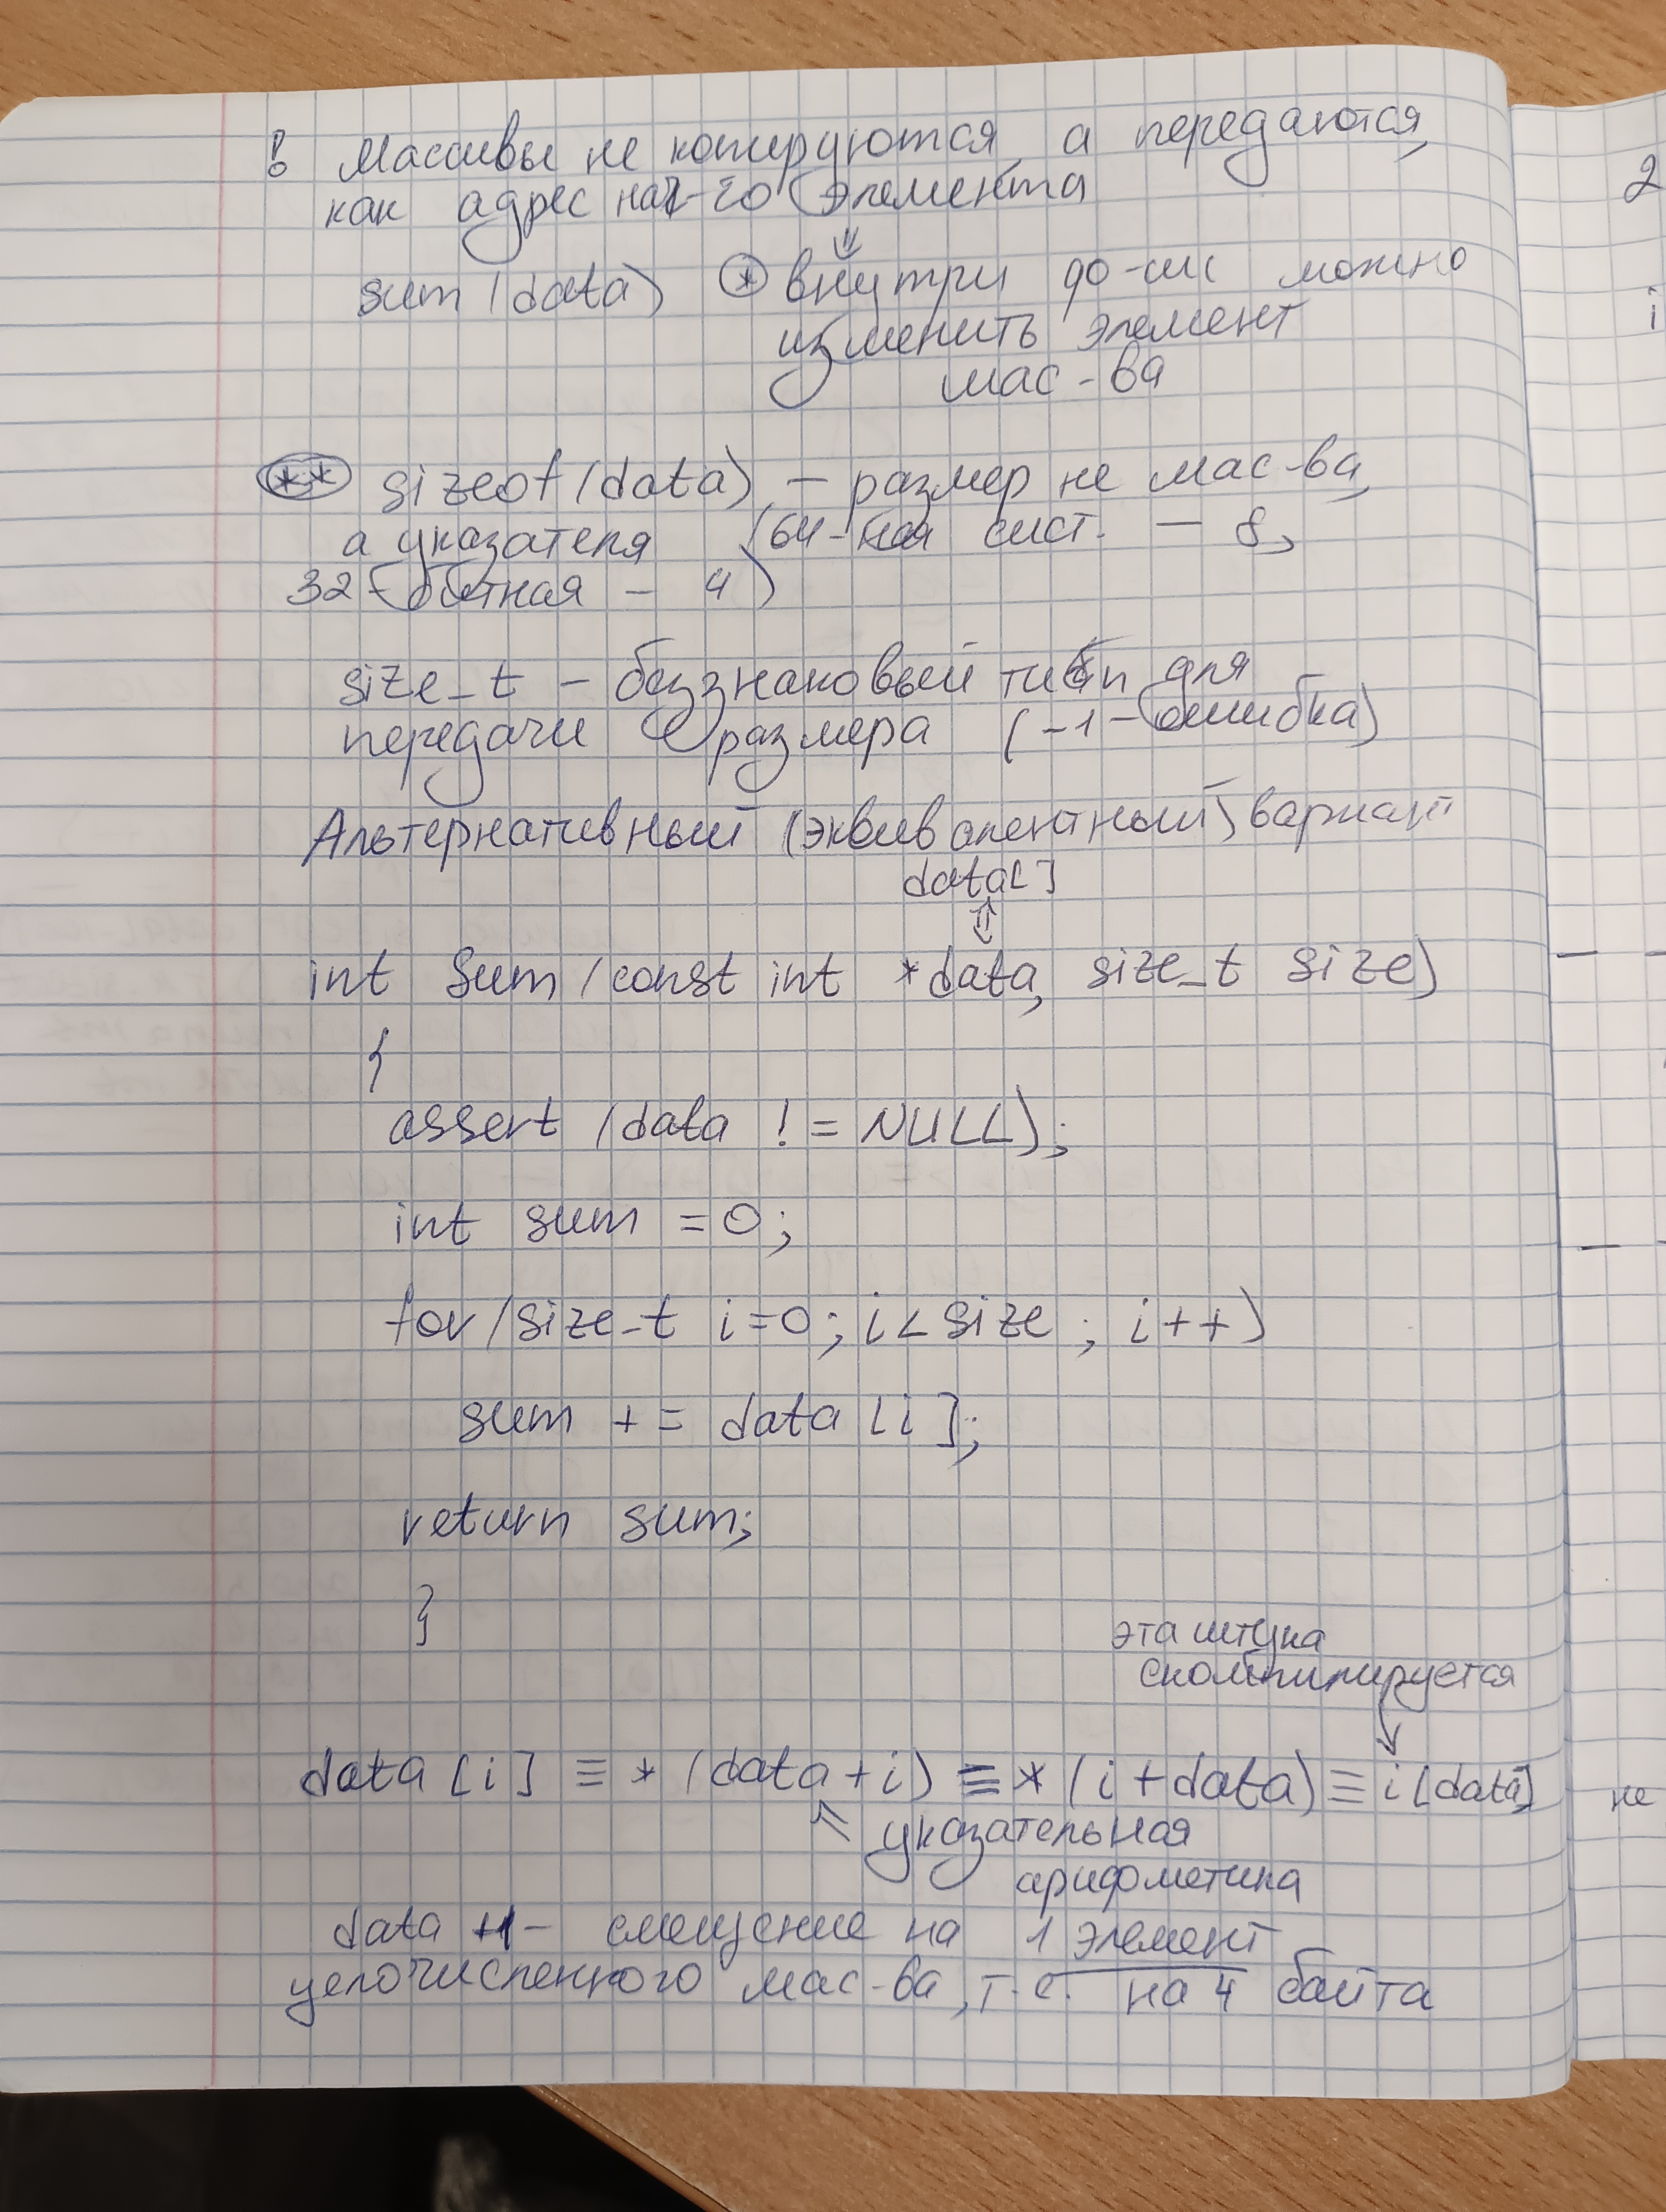 ! Массивы не копируются, а передаются,
как адрес нач-го элемента
⇓
sum(data) * внутри ф-ии можно
изменить элемент
мас-ва
** sizeof(data) – размер не мас-ва,
а указателя (64-ная сист. – 8,
32-битная – 4)
size_t – беззнаковый тип для
передачи размера (-1 – ошибка)
Альтернативный (эквивалентный) вариант
data[]
⇕
int sum(const int *data, size_t size)
{
assert(data != NULL);
int sum = 0;
for(size_t i=0; i<size; i++)
sum += data[i];
return sum;
}
эта штука
скомпилируется
↓
data[i] ≡ *(data+i) ≡ *(i+data) ≡ i[data]
⇑ указательная
арифметика
data +1 – смещение на 1 элемент
целочисленного мас-ва, т.е. на 4 байта
2
i
не